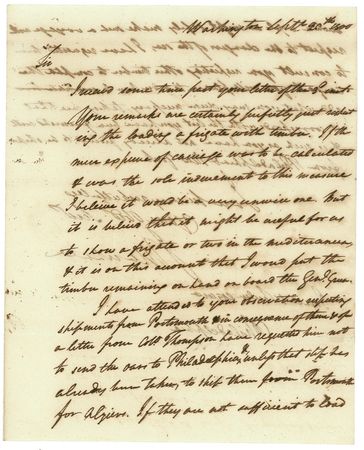 Washington Septr 20th 1800
Sir
I recd some time past your letter of the 2 inst.
Your remarks are certainly perfectly just respect
ing the loading a frigate with timber. If the
mere expense of carriage was to be calculated
& was the sole inducement to this measure
I believe it would be a very unwise one. But
it is believd that it might be useful for us
to show a frigate or two in the mediteranean
& it is on this account that I woud put the
timber remaining on hand on board the Genl Greene.
I have attended to your observation respecting
shipments from Portsmouth & in consequence of them & of
a letter from Colo Thompson have requested him not
to send the oars to Philadelphia, unless that step has
already been taken, to ship them from Portsmouth
for Algiers. If they are not sufficient to load